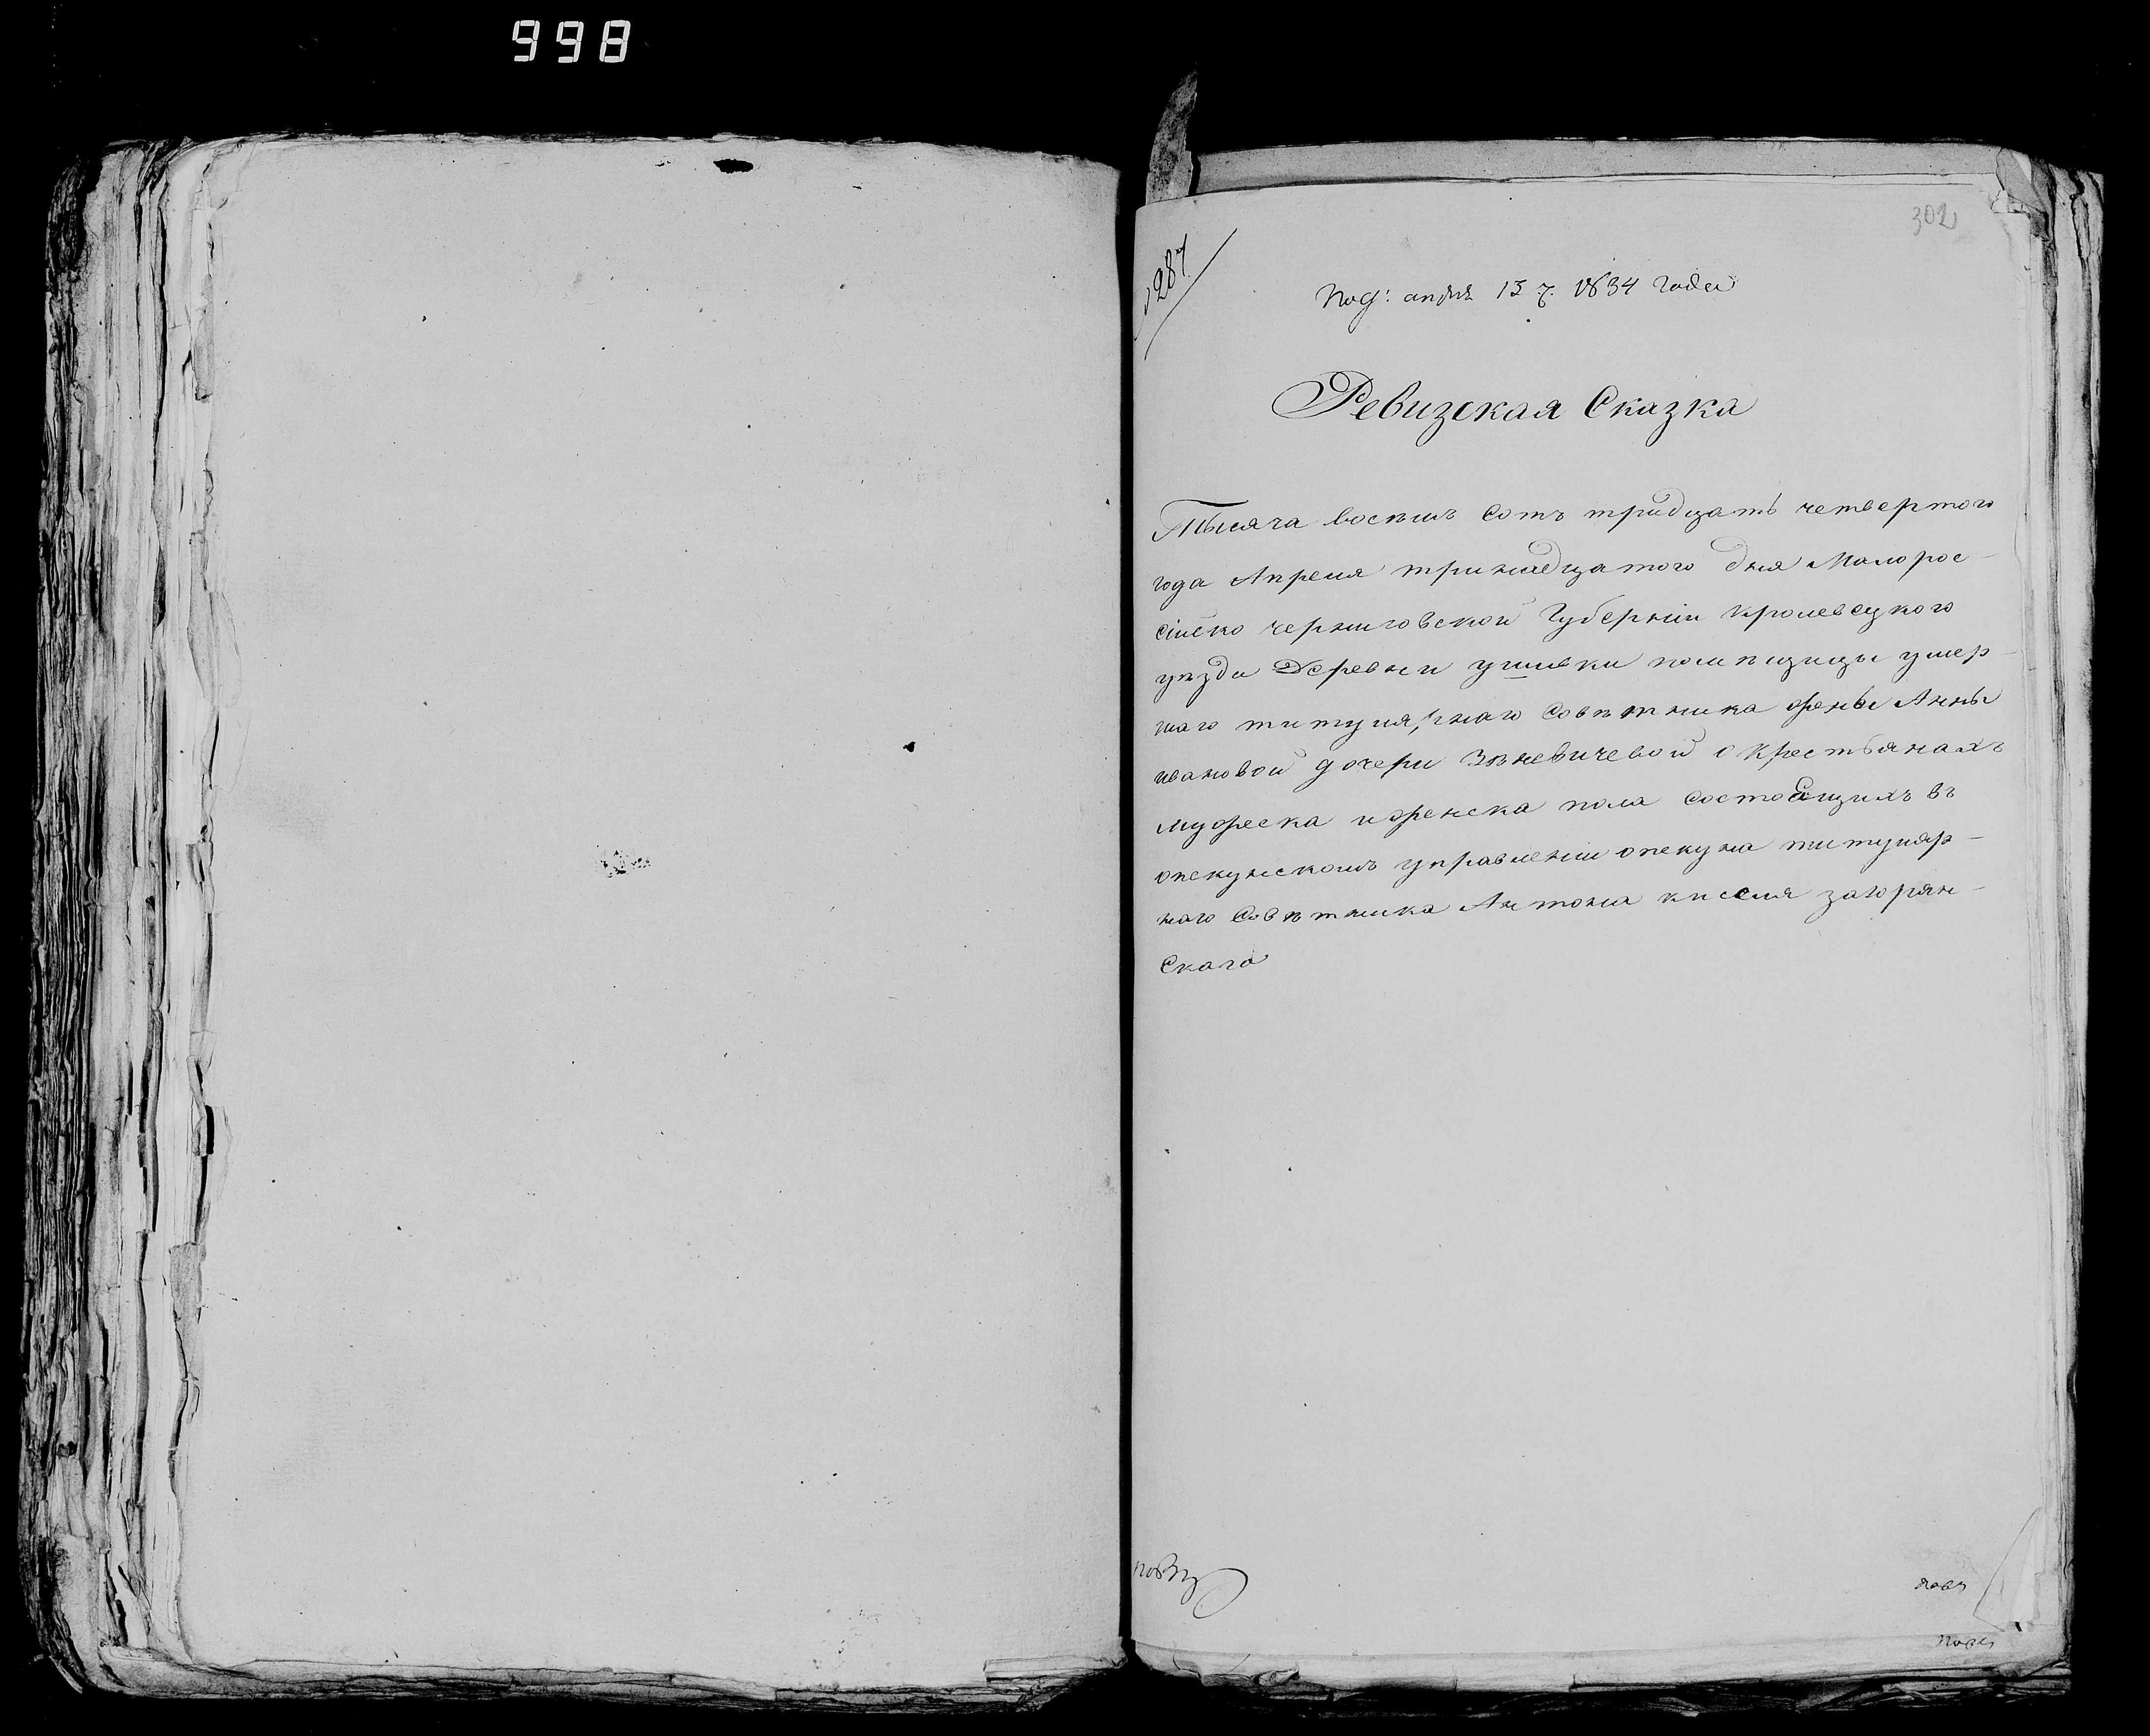 998
302
1287
Под: апреля 13 г. 1834 Года
Ревизская Сказка
Тысяча восѣмъ Сотъ тридцать четвертого
года Апреля тринадцатого дня Малорос-
сійско черниговской Губерніи Кролевецкого
уѣзда Деревни ушивки помѣщицы умер-
шаго титуляр,наго Совѣтника жены Анны
ивановой дочери Зѣневичевой о Крестьянахъ
мужеска и женска пола состоящихъ въ
опекунскомъ управленіи опекуна титуляр-
наго Совѣтника Антона киселя загорян-
Скаго